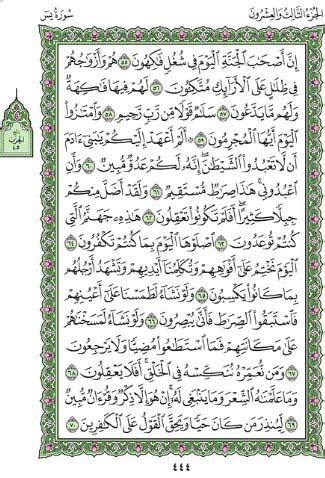 الجزء الثالث والعشرون
سورة يس
إِنَّ أَصْحَٰبَ ٱلْجَنَّةِ ٱلْيَوْمَ فِى شُغُلٍ فَٰكِهُونَ ٥٥ هُمْ وَأَزْوَٰجُهُمْ
فِى ظِلَٰلٍ عَلَى ٱلْأَرَآئِكِ مُتَّكِـُٔونَ ٥٦ لَهُمْ فِيهَا فَٰكِهَةٌ
وَلَهُم مَّا يَدَّعُونَ ٥٧ سَلَٰمٌ قَوْلًا مِّن رَّبٍّ رَّحِيمٍ ٥٨ وَٱمْتَٰزُوا۟
ٱلْيَوْمَ أَيُّهَا ٱلْمُجْرِمُونَ ٥٩ أَلَمْ أَعْهَدْ إِلَيْكُمْ يَٰبَنِىٓ ءَادَمَ
أَن لَّا تَعْبُدُوا۟ ٱلشَّيْطَٰنَ إِنَّهُۥ لَكُمْ عَدُوٌّ مُّبِينٌ ٦٠ وَأَنِ
ٱعْبُدُونِى هَٰذَا صِرَٰطٌ مُّسْتَقِيمٌ ٦١ وَلَقَدْ أَضَلَّ مِنكُمْ
جِبِلًّا كَثِيرًا أَفَلَمْ تَكُونُوا۟ تَعْقِلُونَ ٦٢ هَٰذِهِۦ جَهَنَّمُ ٱلَّتِى
كُنتُمْ تُوعَدُونَ ٦٣ ٱصْلَوْهَا ٱلْيَوْمَ بِمَا كُنتُمْ تَكْفُرُونَ ٦٤
ٱلْيَوْمَ نَخْتِمُ عَلَىٰٓ أَفْوَٰهِهِمْ وَتُكَلِّمُنَآ أَيْدِيهِمْ وَتَشْهَدُ أَرْجُلُهُم
بِمَا كَانُوا۟ يَكْسِبُونَ ٦٥ وَلَوْ نَشَآءُ لَطَمَسْنَا عَلَىٰٓ أَعْيُنِهِمْ
فَٱسْتَبَقُوا۟ ٱلصِّرَٰطَ فَأَنَّىٰ يُبْصِرُونَ ٦٦ وَلَوْ نَشَآءُ لَمَسَخْنَٰهُمْ
عَلَىٰ مَكَانَتِهِمْ فَمَا ٱسْتَطَٰعُوا۟ مُضِيًّا وَلَا يَرْجِعُونَ
٦٧ وَمَن نُّعَمِّرْهُ نُنَكِّسْهُ فِى ٱلْخَلْقِ أَفَلَا يَعْقِلُونَ ٦٨
وَمَا عَلَّمْنَٰهُ ٱلشِّعْرَ وَمَا يَنۢبَغِى لَهُۥٓ إِنْ هُوَ إِلَّا ذِكْرٌ وَقُرْءَانٌ مُّبِينٌ
٦٩ لِّيُنذِرَ مَن كَانَ حَيًّا وَيَحِقَّ ٱلْقَوْلُ عَلَى ٱلْكَٰفِرِينَ ٧٠
الحزب
٤٥
٤٤٤